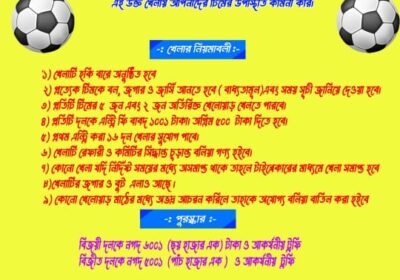 এই উক্ত খেলায় আপনাদের টিমের উপস্থিতি কামনা করি।
-ঃ খেলার নিয়মাবলী ঃ-
১) খেলাটি হকি বারে অনুষ্ঠিত হবে
২) প্রত্যেক টিমকে বল, জুপার ও জার্সি আনতে হবে ( বাধ্যতামূল)এবং সময় সূচী জানিয়ে দেওয়া হবে।
৩) প্রতিটি টিমের ৫ জন এবং ২ জন অতিরিক্ত খেলোয়াড় খেলতে পারবে।
৪) প্রতিটি দলকে এন্ট্রি ফি বাবদ ১০০১ টাকা। অগ্রিম ৫০০ টাকা দিতে হবে।
৫) প্রথম এন্ট্রি করা ১৬ দল খেলার সুযোগ পাবে।
৬) খেলাটি রেফারী ও কমিটির সিদ্ধান্ত চূড়ান্ত বলিয়া গণ্য হইবে।
৭) কোনো খেলা যদি নির্দিষ্ট সময়ের মধ্যে অসমাপ্ত থাকে তাহলে টাইব্রেকারের মাধ্যমে খেলা সমাপ্ত হবে
৮)খেলাটির জুপার ও বুট এলাও আছে।
৯) কোনো খেলোয়াড় মাঠের মধ্যে অভদ্র আচরন করিলে তাহাকে অযোগ্য বলিয়া বাতিল করা হইবে
-ঃ পুরস্কার ঃ-
বিজয়ী দলকে নগদ ৬০০১ (ছয় হাজার এক) টাকা ও আকর্ষনীয় ট্রফি
বিজীত দলকে নগদ ৫০০১ (পাঁচ হাজার এক ) ও আকর্ষনীয় ট্রফি